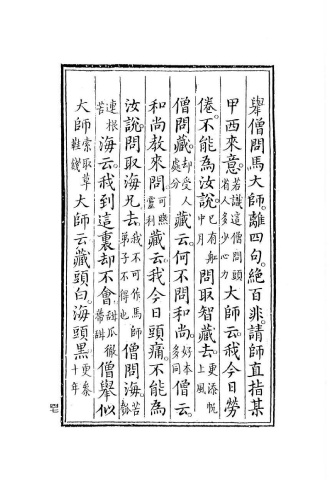 舉僧問馬大師。離四句。絕百非。請師直指某
甲西來意。若識這僧問頭省人多少心力大師云。我今日勞
倦。不能為汝說。已有舡中月問取智藏去。更添帆上風
僧問藏。却受人處分藏云。何不問和尚。好本多同僧云。
和尚教來問。可煞靈利藏云。我今日頭痛。不能為
汝說。問取海兄去。我不可作馬師弟子不得也僧問海。苦瓠
連根苦海云。我到這裏却不會。甜瓜徹蒂甜僧舉似
大師。索取草鞋錢大師云。藏頭白。海頭黑。更參十年